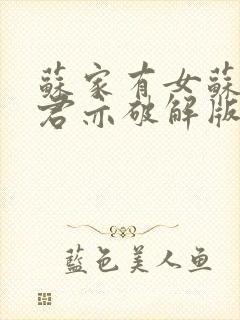 蘇家有女蘇
君亦破解版
藍色美人鱼